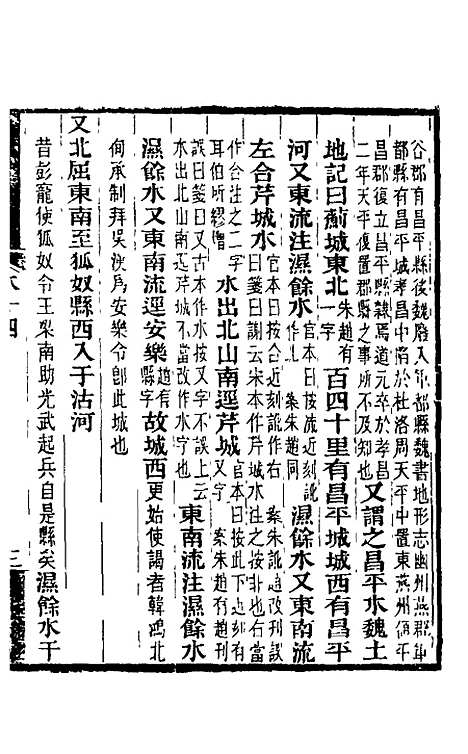 谷郡有昌平縣後魏廢入軍都縣魏書地形志幽州燕郡軍
都縣有昌平城孝昌中陷於杜洛周天平中置東燕州領平
昌郡復立昌平縣隸焉道元卒於孝昌
二年天平復置郡縣之事所不及知也
又謂之昌平水魏土
地記曰薊城東北
朱趙有
一字
百四十里有昌平城城西有昌平
河又東流注濕餘水
官本曰按流近刻訛
作注 案朱趙同
濕餘水又東南流
左合芹城水
官本曰按合近刻訛作右 案朱訛趙改刊誤
曰箋曰謝云宋本作芹城水注之按非也右當
作合注之二字
耳伯所繆增
水出北山南逕芹城
官本曰按此下近刻有
水又字 案朱趙有刊
誤曰箋曰又作水按又字不誤上云
水出北山南不當改作水字也
東南流注濕餘水
濕餘水又東南流逕安樂
趙有
縣字
故城西更始使謁者韓鴻北
徇承制拜吳漢爲安樂令卽此城也
又北屈東南至狐奴縣西入于沽河
昔彭寵使狐奴令王梁南助光武起兵自是縣矣濕餘水于
三